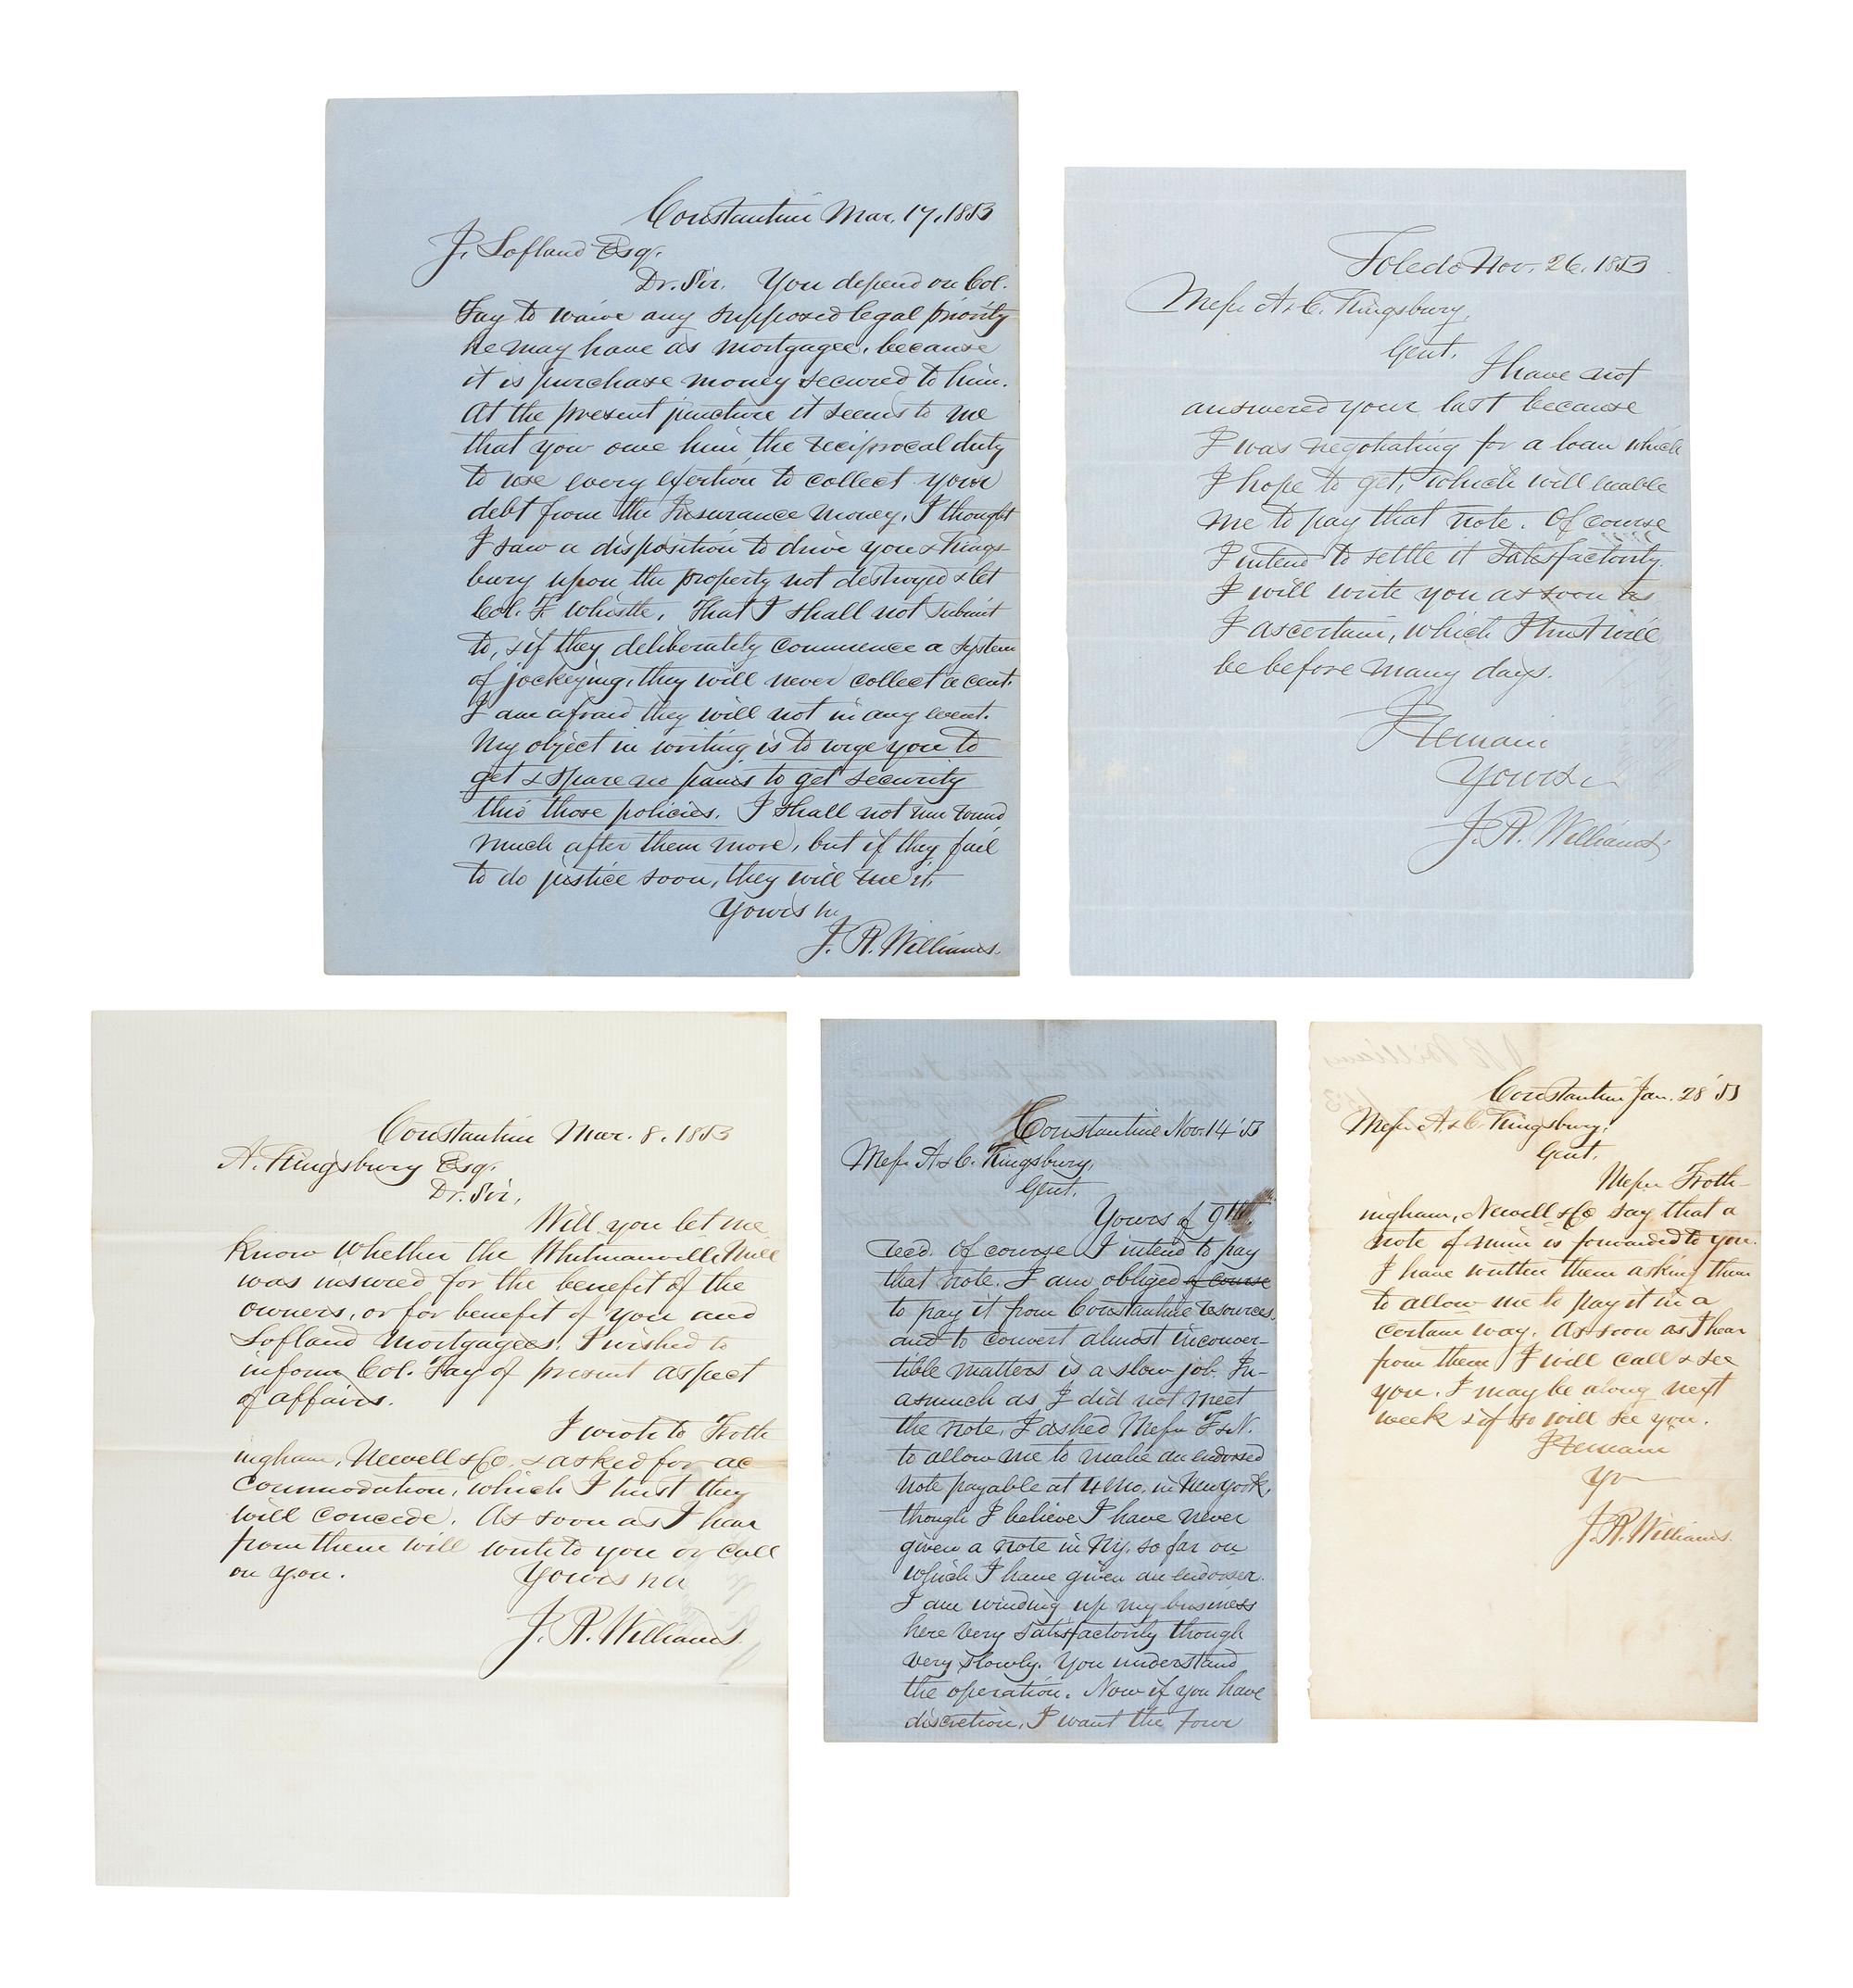 Constantine Mar. 17, 1853
J. Lofland Esq.
Dr. Sir. You depend on Col.
Fay to waive any supposed legal priority
he may have as mortgagee, because
it is purchase money secured to him.
At the present juncture it seems to me
that you owe him the reciprocal duty
to use every exertion to collect your
debt from the Insurance money. I thought
I saw a disposition to drive you & Kings-
bury upon the property not destroyed & let
Col. F. whistle. That I shall not submit
to, & if they deliberately commence a system
of jockeying, they will never collect a cent.
I am afraid they will not in any event.
My object in writing is to urge you to
get & spare no pains to get security
thro those policies. I shall not run round
much after them more, but if they fail
to do justice soon, they will rue it.
Yours
J. R. Williams.
Toledo Nov. 26. 1853
Messrs A & C. Kingsbury,
Gent.
I have not
answered your last because
I was negotiating for a loan which
I hope to get, which will enable
me to pay that note. Of course
I intend to settle it satisfactorily.
I will write you as soon as
I ascertain, which I trust will
be before many days.
I remain
Yours &c
J. R. Williams.
Constantine Mar. 8. 1853
A. Kingsbury Esq.
Dr. Sir,
Will you let me
know whether the Whitmanville Mill
was insured for the benefit of the
owners, or for benefit of you and
Lofland mortgagees. I wished to
inform Col. Fay of present aspect
of affairs.
I wrote to Froth
ingham, Newell & Co. & asked for ac
commodation, which I trust they
will concede. As soon as I hear
from them will write to you or call
on you.
Yours
J. R. Williams.
Constantine Nov. 14 '53
Messrs A & C. Kingsbury,
Gent.
Yours of 9th.
recd. Of course I intend to pay
that note. I am obliged of course
to pay it from Constantine resources,
and to convert almost inconver-
tible matters is a slow job. In-
asmuch as I did not meet
the note, I asked Messrs F & N.
to allow me to make an endorsed
note payable at 4 mo. in New York,
though I believe I have never
given a note in N.y. so far on
which I have given an endorser.
I am winding up my business
here very satisfactorily though
very slowly. You understand
the operation. Now if you have
discretion, I want the four
Constantine Jan. 28 '53
Messrs A. & C. Kingsbury.
Gent.
Messrs Froth-
ingham, Newell & Co say that a
note of mine is forwarded to you.
I have written them asking them
to allow me to pay it in a
certain way. As soon as I hear
from them I will call & see
you. I may be along next
week & if so will see you.
I remain
Yr
J. R. Williams.